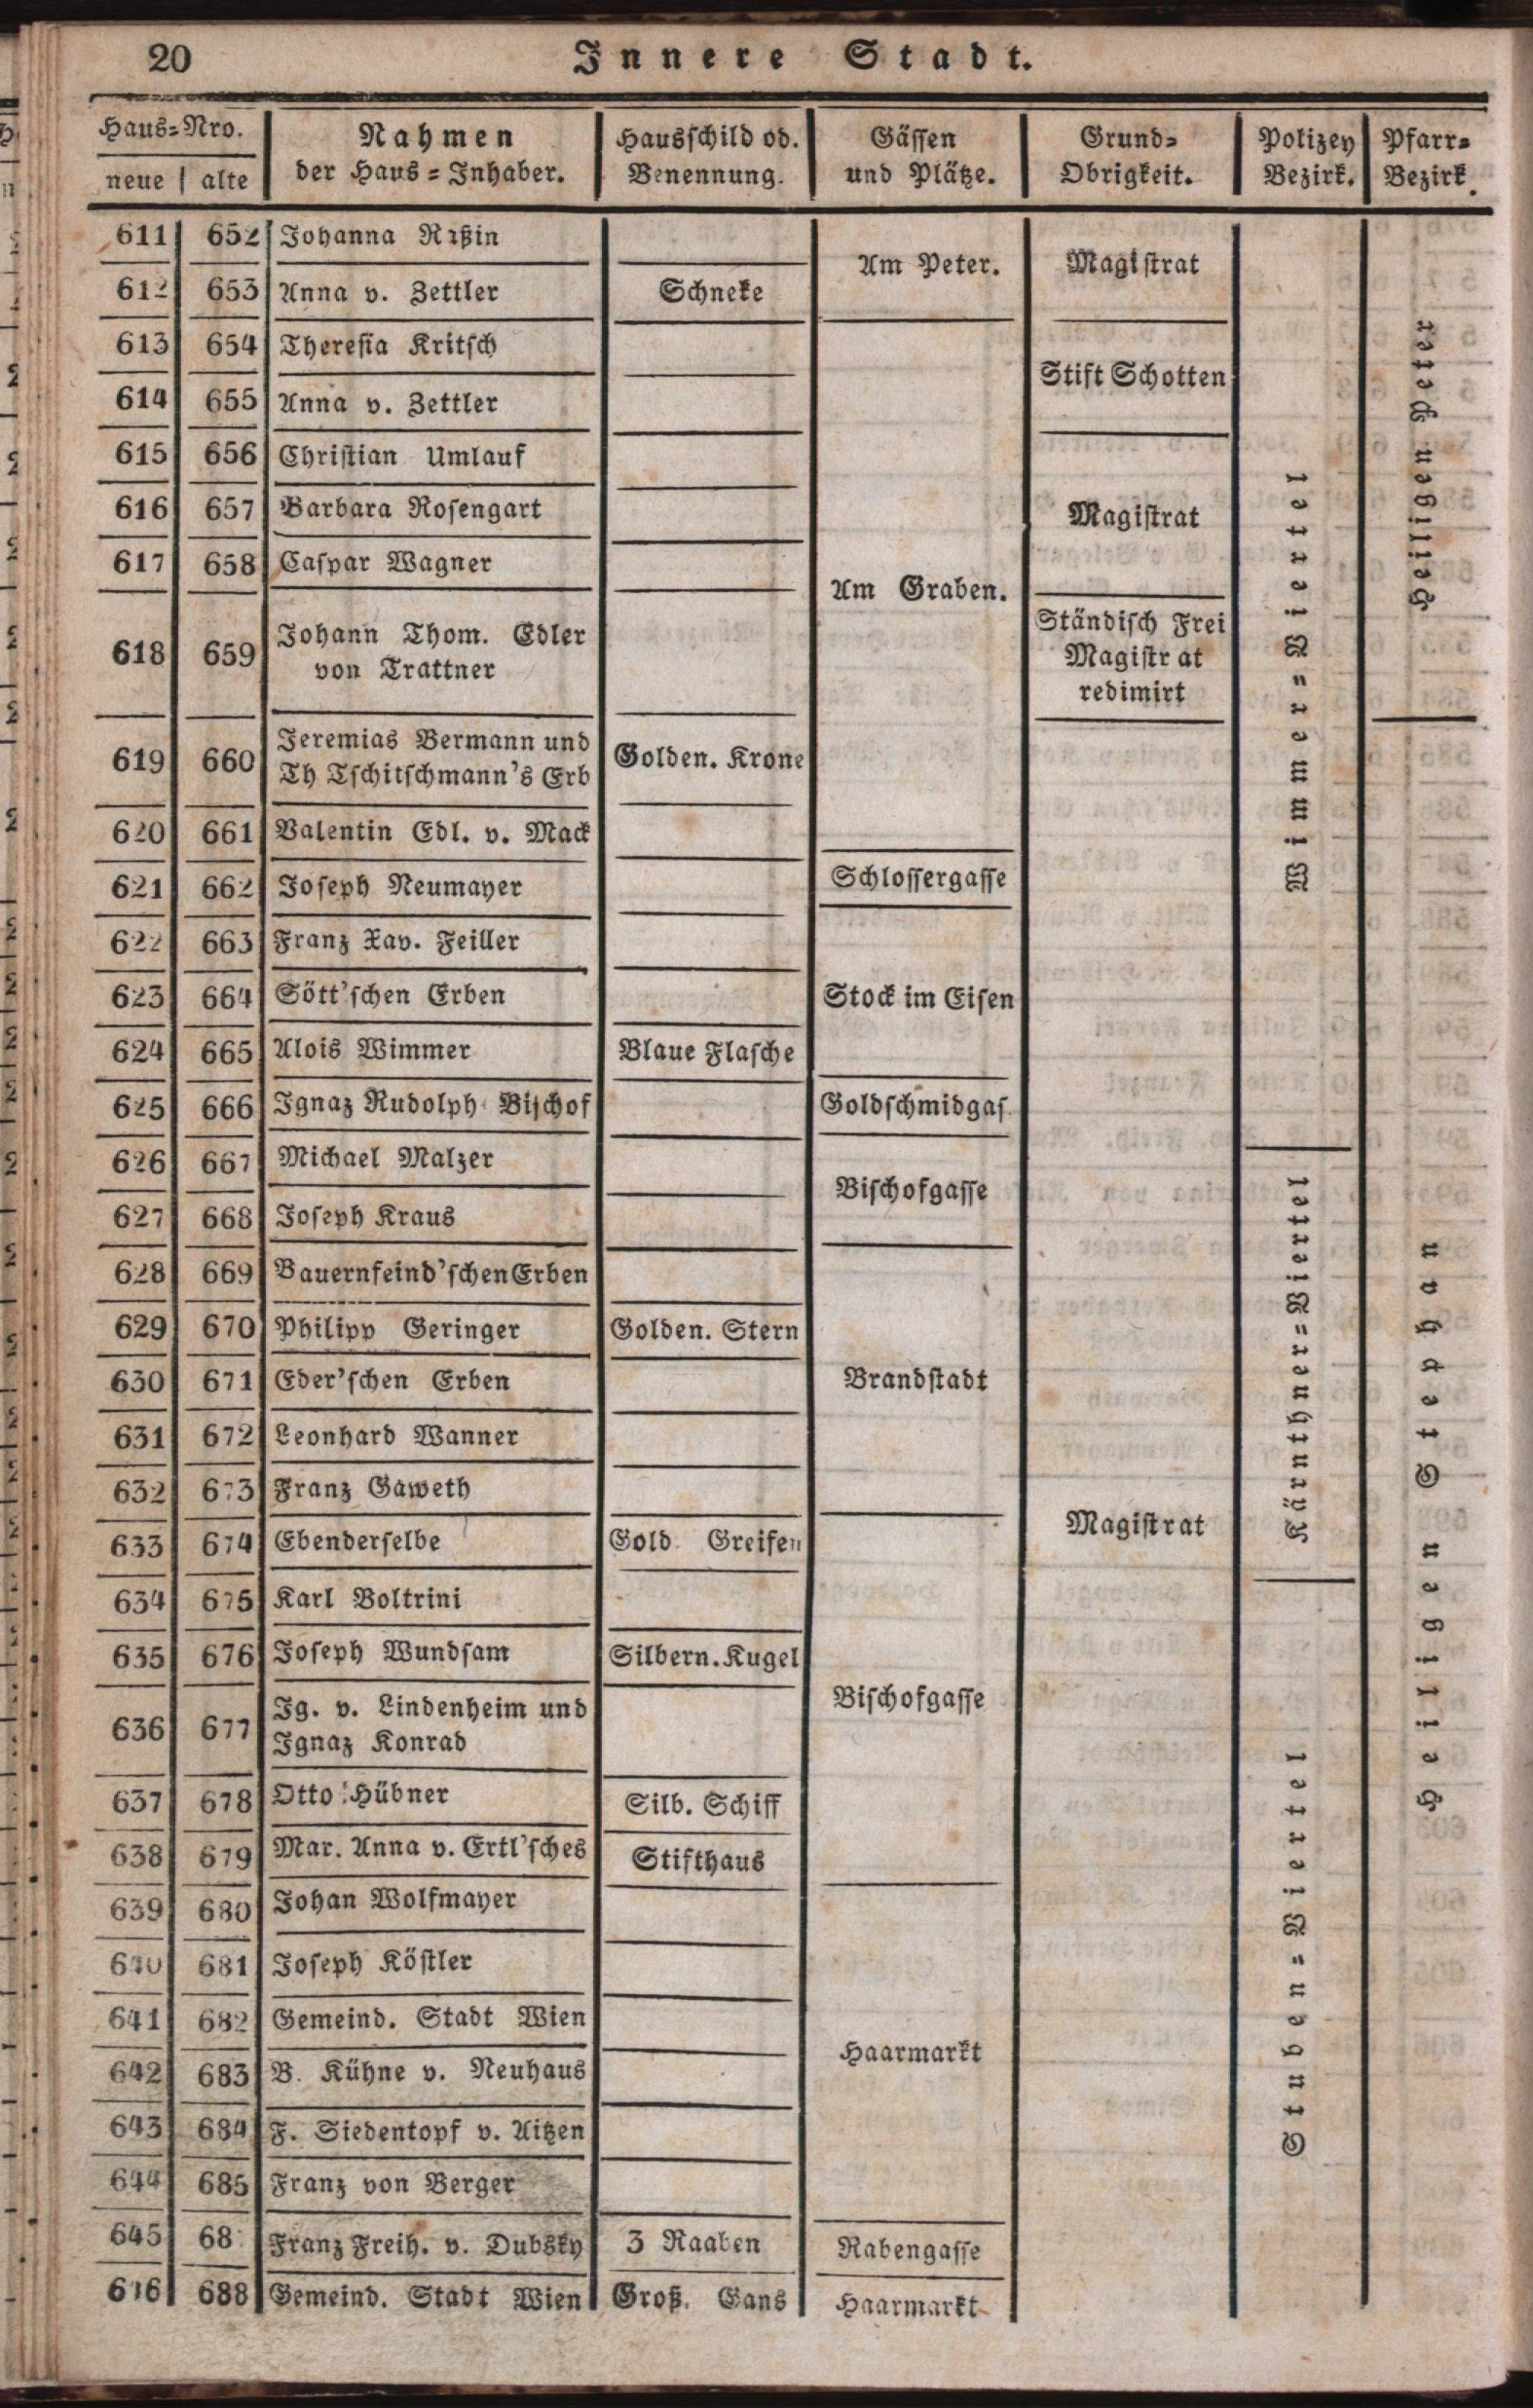 20 Innere Stadt.
Haus=Nro. Nahmen Hausschild od. Gässen Grund= Polizey Pfarr=
neue alte der Haus=Inhaber. Benennung. und Plätze. Obrigkeit. Bezirk. Bezirk.
611 652 Johanna Rißin
Am Peter. Magistrat
612 653 Anna v. Zettler Schneke
613 654 Theresia Kritsch
Stift Schotten
614 655 Anna v. Zettler
615 656 Christian Umlauf
616 657 Barbara Rosengart Magistrat
617 658 Caspar Wagner
Am Graben.
618 659 Johann Thom. Edler
von Trattner
Ständisch Frei
Magistrat
redimirt
Heiligen Peter
619 660 Jeremias Bermann und
Th Tschitschmann's Erb
Golden. Krone
620 661 Valentin Edl. v. Mack
621 662 Joseph Neumayer Schlossergasse
Wimmer=Viertel
622 663 Franz Xav. Feiller
623 664 Sött'schen Erben Stock im Eisen
624 665 Alois Wimmer Blaue Flasche
625 666 Ignaz Rudolph Bischof Goldschmidgas.
626 667 Michael Malzer
Bischofgasse
627 668 Joseph Kraus
628 669 Bauernfeind'schen Erben
629 670 Philipp Geringer Golden. Stern
630 671 Eder'schen Erben Brandstadt
631 672 Leonhard Wanner
632 673 Franz Gaweth
Magistrat
Kärnthner=Viertel
633 674 Ebenderselbe Gold. Greifen
634 675 Karl Voltrini
635 676 Joseph Wundsam Silbern. Kugel
636 677 Ig. v. Lindenheim und
Ignaz Konrad
Bischofgasse
637 678 Otto Hübner Silb. Schiff
Heiligen Stephan
638 679 Mar. Anna v. Ertl'sches Stifthaus
639 680 Johan Wolfmayer
640 681 Joseph Köstler
641 682 Gemeind. Stadt Wien
Haarmarkt
642 683 B. Kühne v. Neuhaus
643 684 F. Siedentopf v. Aitzen
Stuben=Viertel
644 685 Franz von Berger
645 68 Franz Freih. v. Dubsky 3 Raaben Rabengasse
646 688 Gemeind. Stadt Wien Groß. Gans Haarmarkt